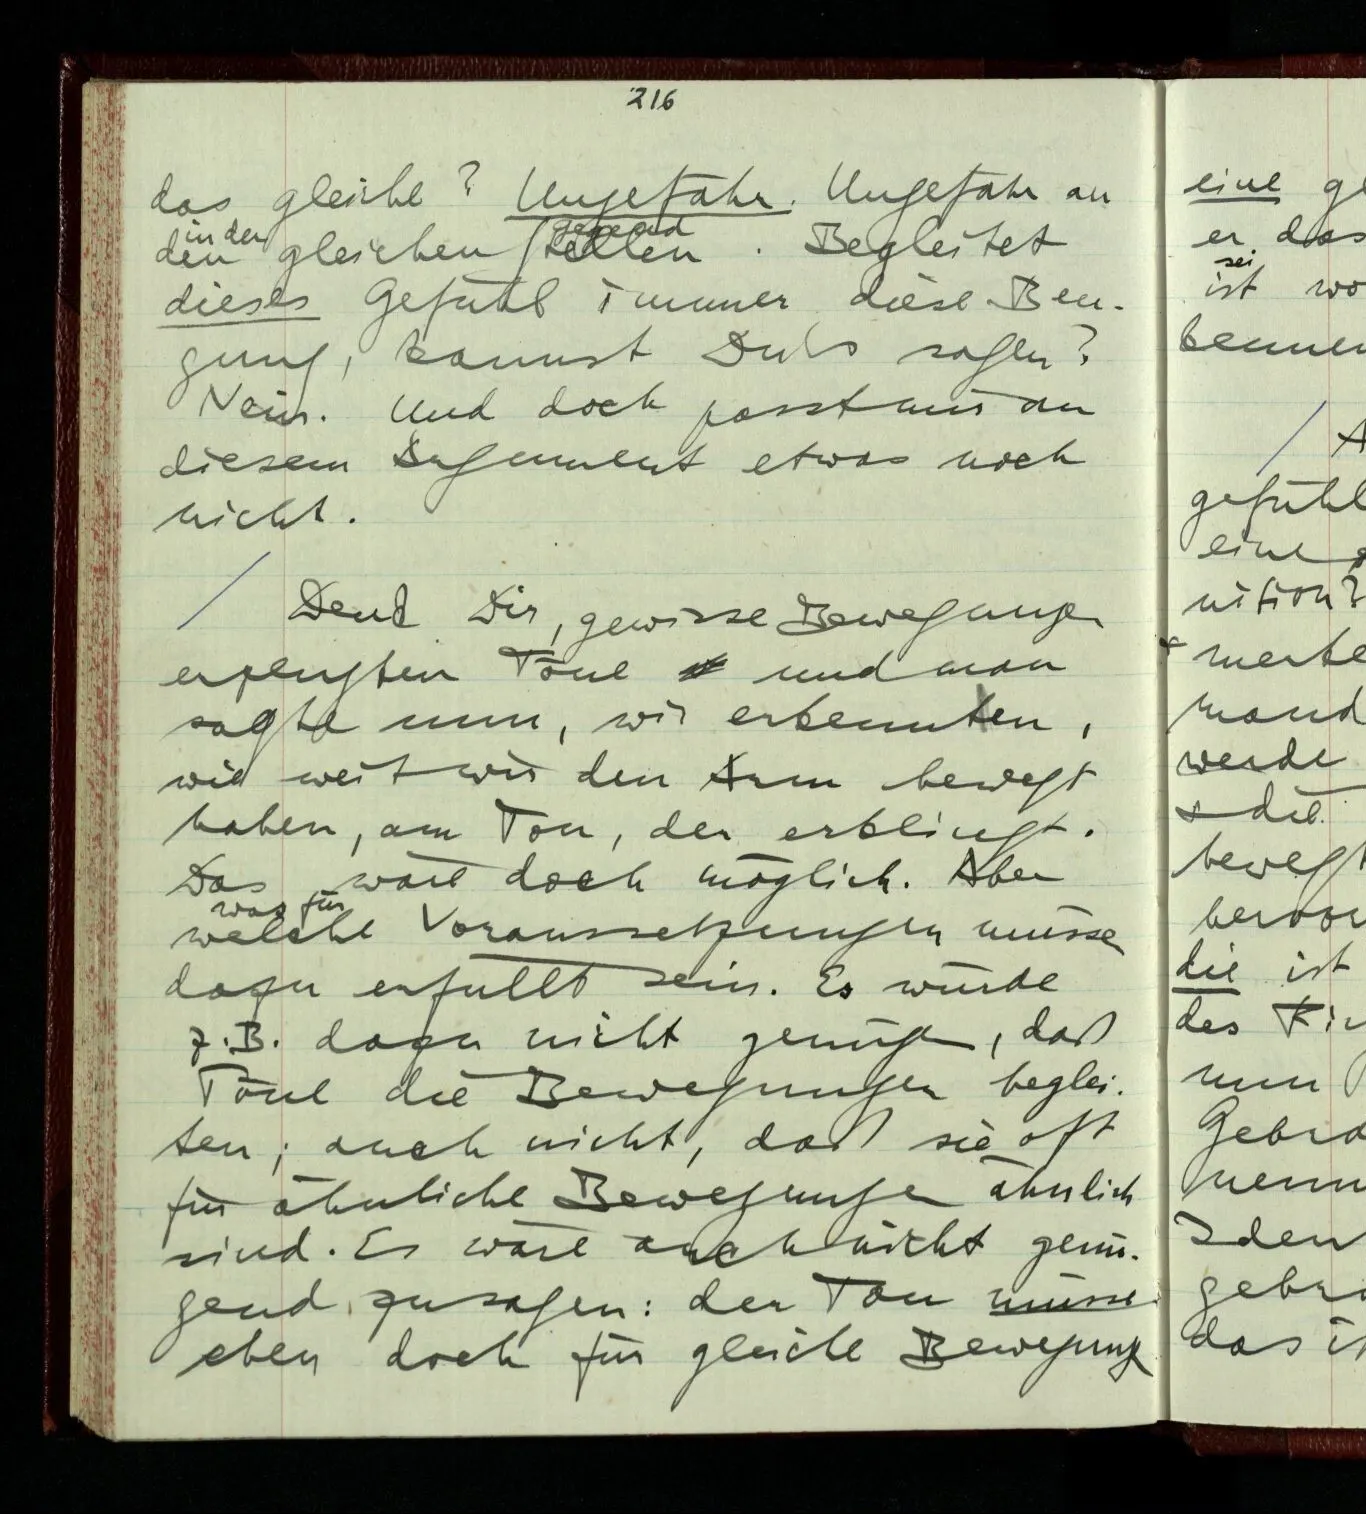 216
das gleiche? Ungefähr. Ungefähr an
in der gegend
den gleichen Stellen. Begleitet
dieses Gefühl immer diese Beu-
gung, kannst Du's sagen?
Nein. Und doch passt mir an
diesem Argument etwas noch
nicht.
/ Denk Dir, gewisse Bewegungen
erzeugten Töne und man
sagte nun, wir erkennten,
wie weit wir den Arm bewegt
haben, am Ton, der erklingt.
Das wäre doch möglich. Aber
was für
welche Voraussetzungen müssen
dazu erfüllt sein. Es würde
z.B. dazu nicht genügen, daß
Töne die Bewegungen beglei-
ten; auch nicht, daß sie oft
für ähnliche Bewegungen ähnlich
sind. Es wäre auch nicht genü-
gend, zu sagen: der Ton müsse
eben doch für gleiche Bewegung
eine
er das
sei
ist
/
gefühl
eine
nition?
werde
die
die ist
des
nun
das